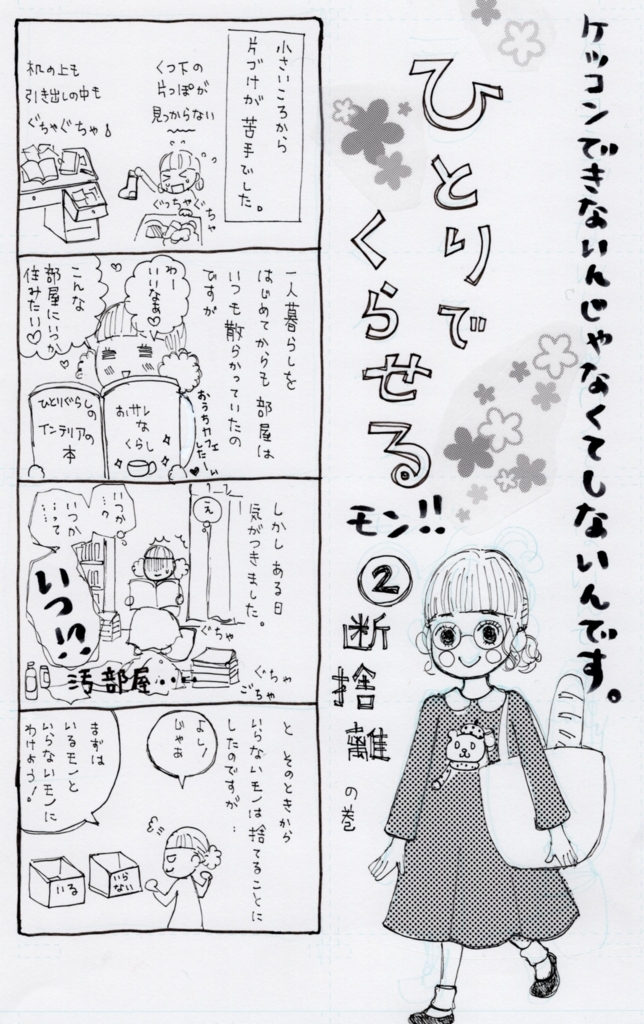 ケッコンできないんじゃなくてしないんです。
ひとりで
くらせる
モン!!
②断捨離の巻
小さいころから
片づけが苦手でした。
くつ下の
片っぽが
見つからない
ぐっちゃぐちゃ
机の上も
引き出しの中も
ぐちゃぐちゃ!
一人暮らしを
はじめてからも部屋は
いつも散らかっていたの
ですが
わー
いいなぁ♡
こんな
部屋にいつか
住みたい♡
おうちカフェ
したーい
オサレ
な
くらし
ひとりぐらしの
インテリアの
本
しかし ある日
気がつきました。
え
いつか
…の
いつか
…って
いつ!?
ぐちゃ
ぐちゃ
ごちゃ
汚部屋・・・・
と そのときから
いらないモノは捨てることに
したのですが…
よし!
じゃあ
まずは
いるモノと
いらないモノに
わけよう!
いら
ない
いる